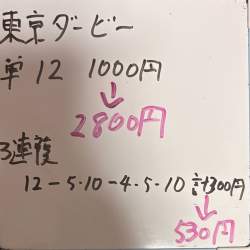 東京ダービー
単 12 1000円
↓
2800円
3連複
12-5・10-4・5・10 計300円
↓
530円